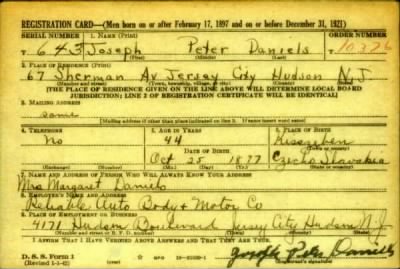 REGISTRATION CARD—(Men born on or after February 17, 1897 and on or before December 31, 1921)
SERIAL NUMBER 1. NAME (Print) ORDER NUMBER
T 643 Joseph Peter Daniels T 10376
(First) (Middle) (Last)
2. PLACE OF RESIDENCE (Print)
67 Sherman Av Jersey City Hudson N.J
(Number and street) (Town, township, village, or city) (County) (State)
[THE PLACE OF RESIDENCE GIVEN ON THE LINE ABOVE WILL DETERMINE LOCAL BOARD
JURISDICTION; LINE 2 OF REGISTRATION CERTIFICATE WILL BE IDENTICAL]
3. MAILING ADDRESS
same
[Mailing address if other than place indicated on line 2. If same insert word same]
4. TELEPHONE 5. AGE IN YEARS 6. PLACE OF BIRTH
No 44
DATE OF BIRTH (Town or county)
Oct 25 1897 Czechoslovakia
(Exchange) (Number) (Mo.) (Day) (Yr.) (State or country)
7. NAME AND ADDRESS OF PERSON WHO WILL ALWAYS KNOW YOUR ADDRESS
Mrs Margaret Daniels
8. EMPLOYER'S NAME AND ADDRESS
Reliable Auto Body & Motor Co
9. PLACE OF EMPLOYMENT OR BUSINESS
4171 Hudson Boulevard Jersey City Hudson N.J.
(Number and street or R. F. D. number) (Town) (County) (State)
I AFFIRM THAT I HAVE VERIFIED ABOVE ANSWERS AND THAT THEY ARE TRUE.
D. S. S. Form 1
(Revised 1-1-42) GPO Joseph Peter Daniels